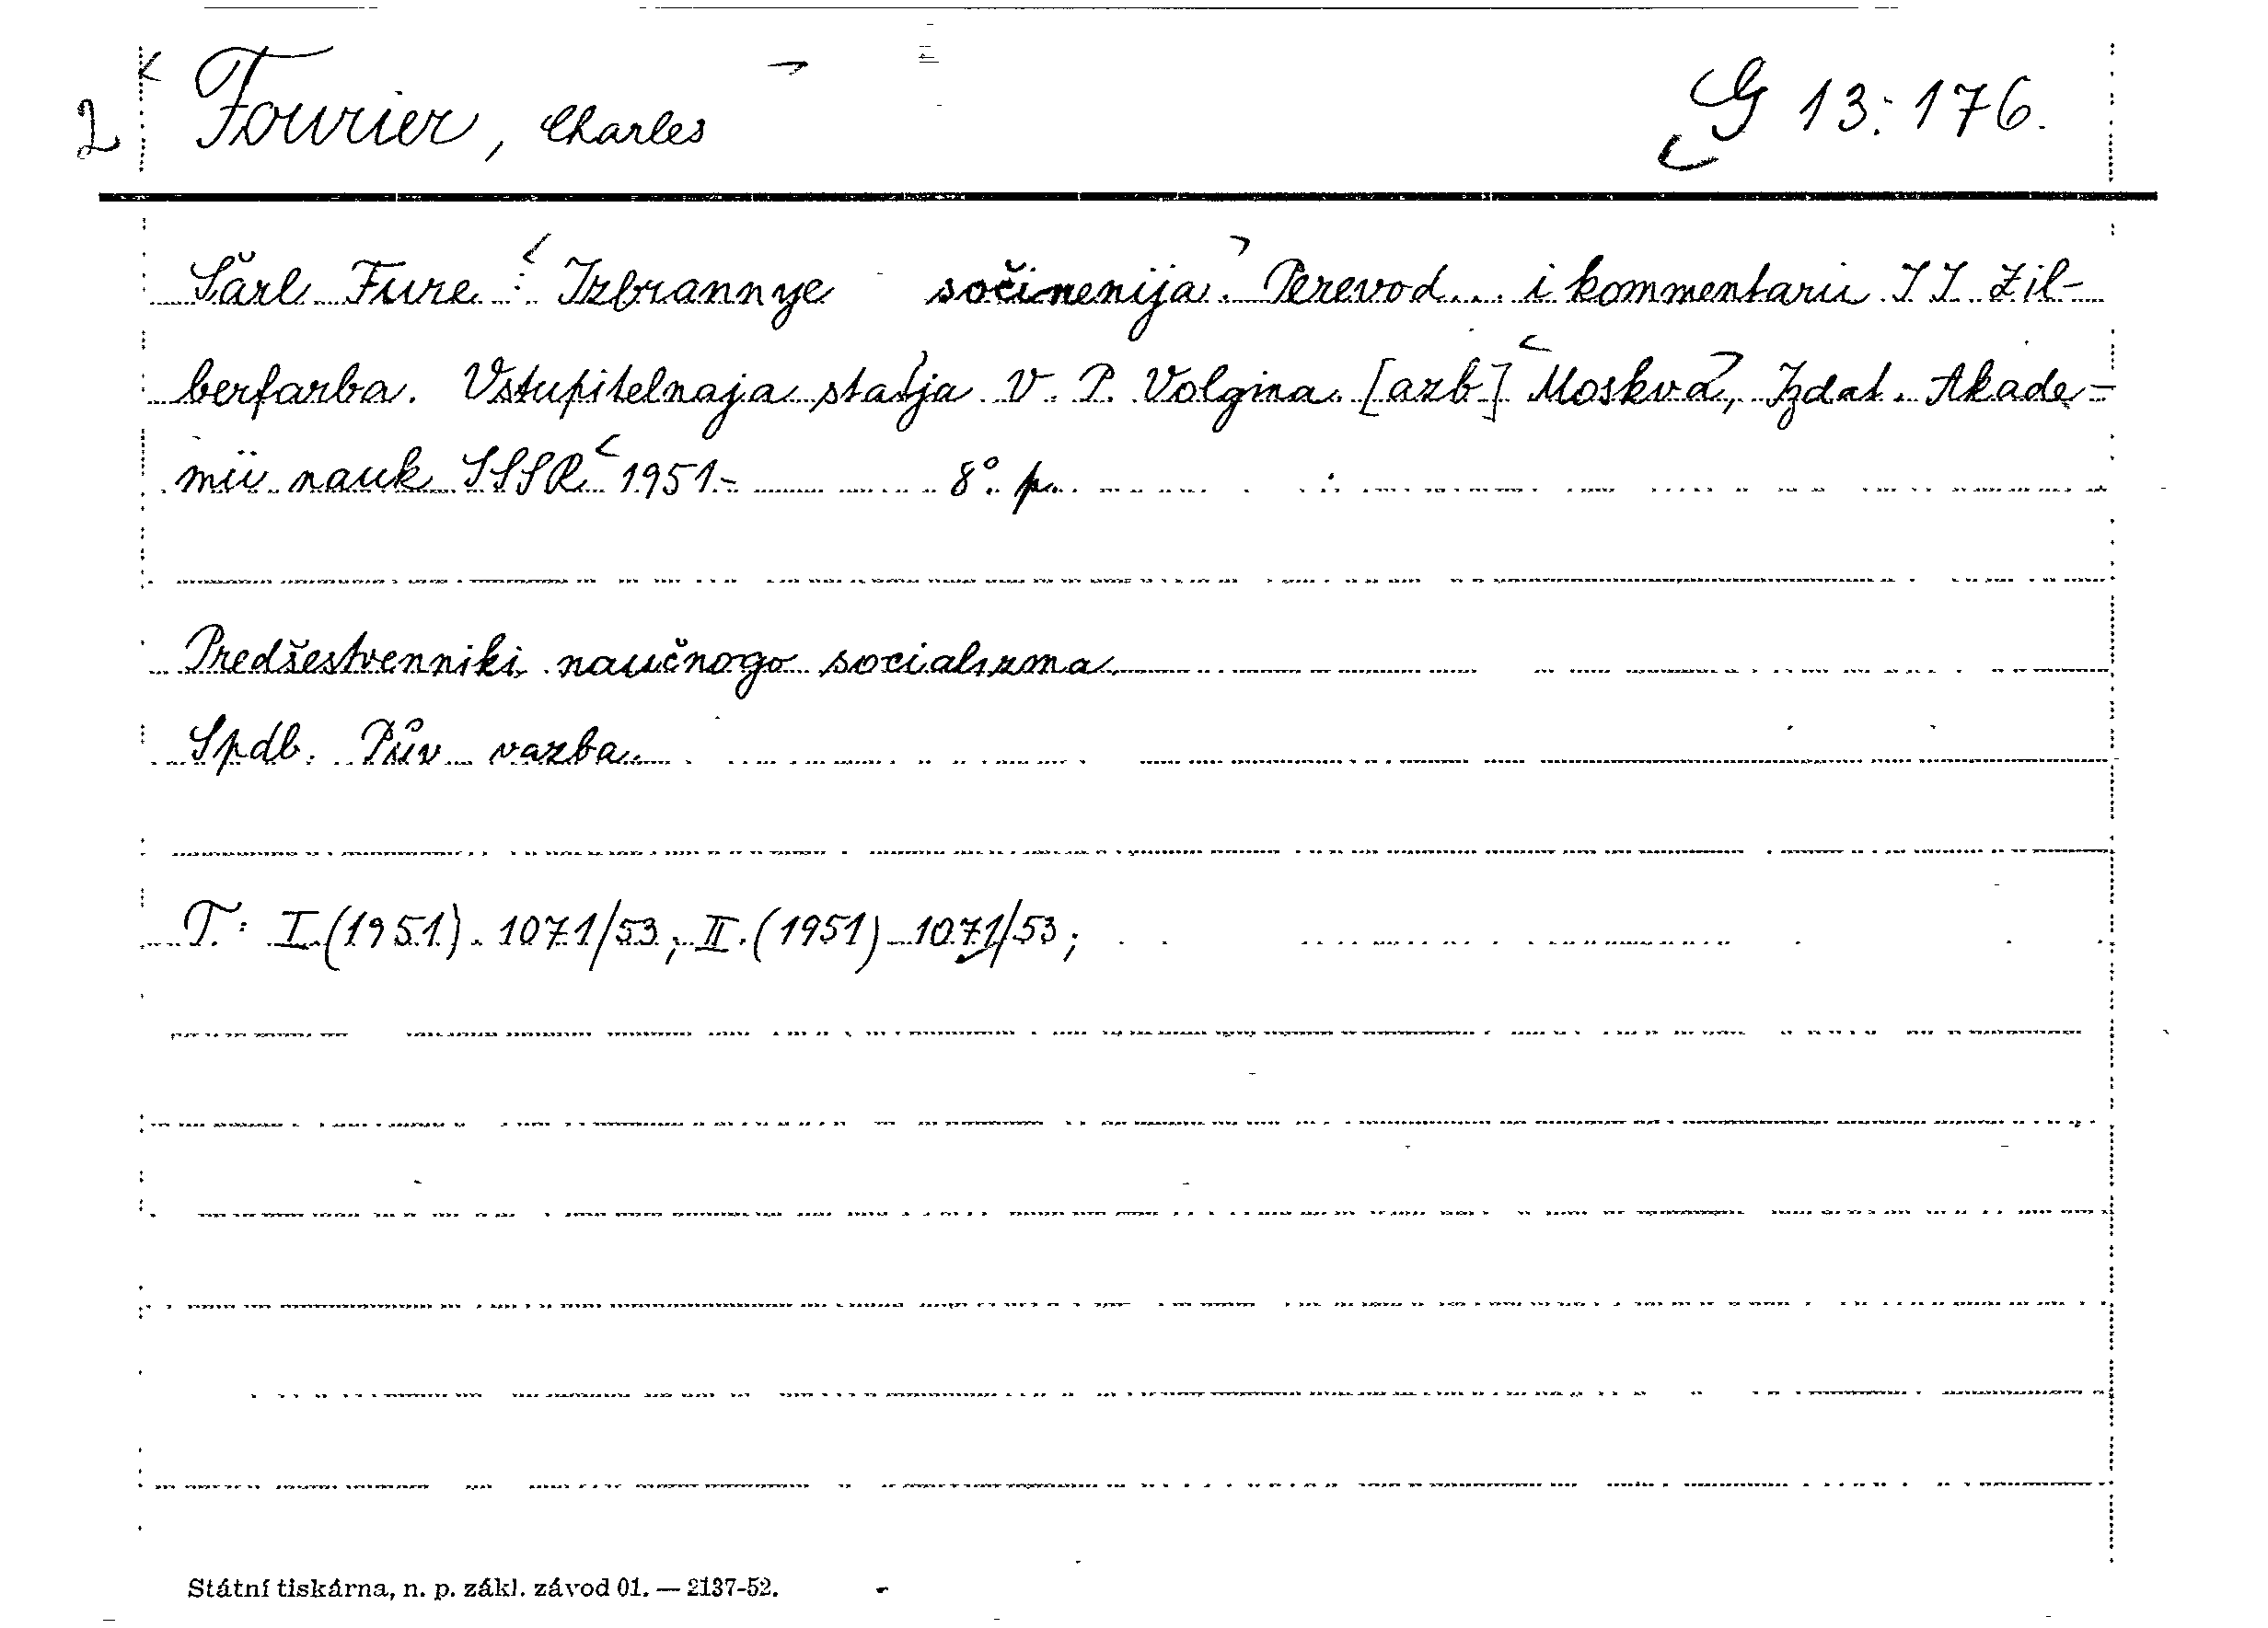 2 Fourier, Charles G 13: 176.
Šarl Fure : Izbrannye sočinenija. Perevod... i kommentarii I I Zil-
berfarba. Vstupitelnaja staťja V. P. Volgina. [azb] Moskva, Izdat. Akade-
mii nauk SSSR 1951- 8° p.
Predšestvenniki naučnogo socializma
Spdb. Pův vazba.
T: I.(1951). 1071/53; II.(1951) 1071/53;
Státní tiskárna, n. p. zákl. závod 01. — 2137-52.